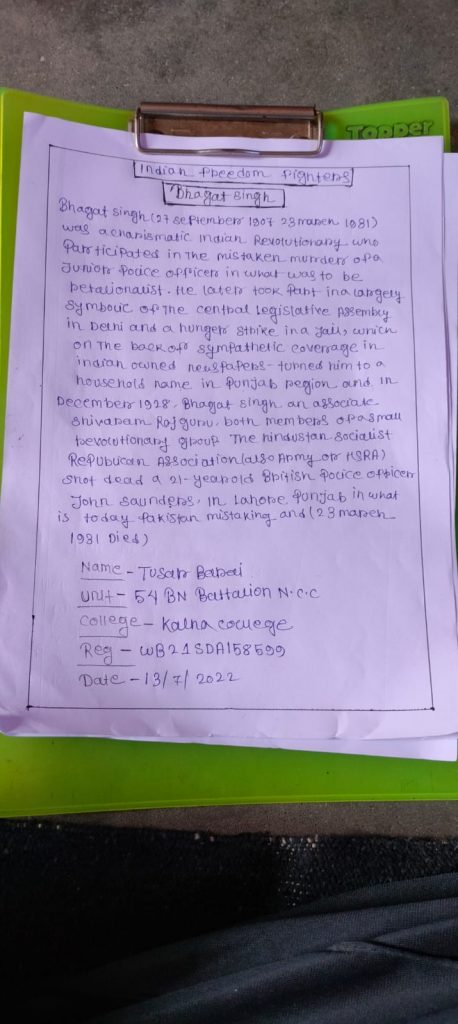 Topper
Indian Freedom Fighters
Bhagat singh
Bhagat singh (27 september 1907 23 march 1931)
was a charismatic Indian Revolutionary who
Participated in the mistaken murder of a
Junior Police officer in what was to be
retalionalist. He later took part in a largely
symbolic of the central legislative Assembly
in Delhi and a hunger strike in a Jail, which
on the back of sympathetic coverage in
indian owned newspapers - turned him to a
household name in Punjab region and in
December 1928. Bhagat singh an associate
shivaram Rajguru. both members of a small
revolutionary group The hindustan socialist
Republican Association (also Army or HSRA)
shot dead a 21-year old British Police officer
John saunders, in Lahore Punjab in what
is today Pakistan mistaking and (23 march
1931 Died)
Name - Tusar Barai
Unit - 54 BN Battalion N.C.C
College - Kalna college
Reg - WB21SDA158599
Date - 13/7/2022